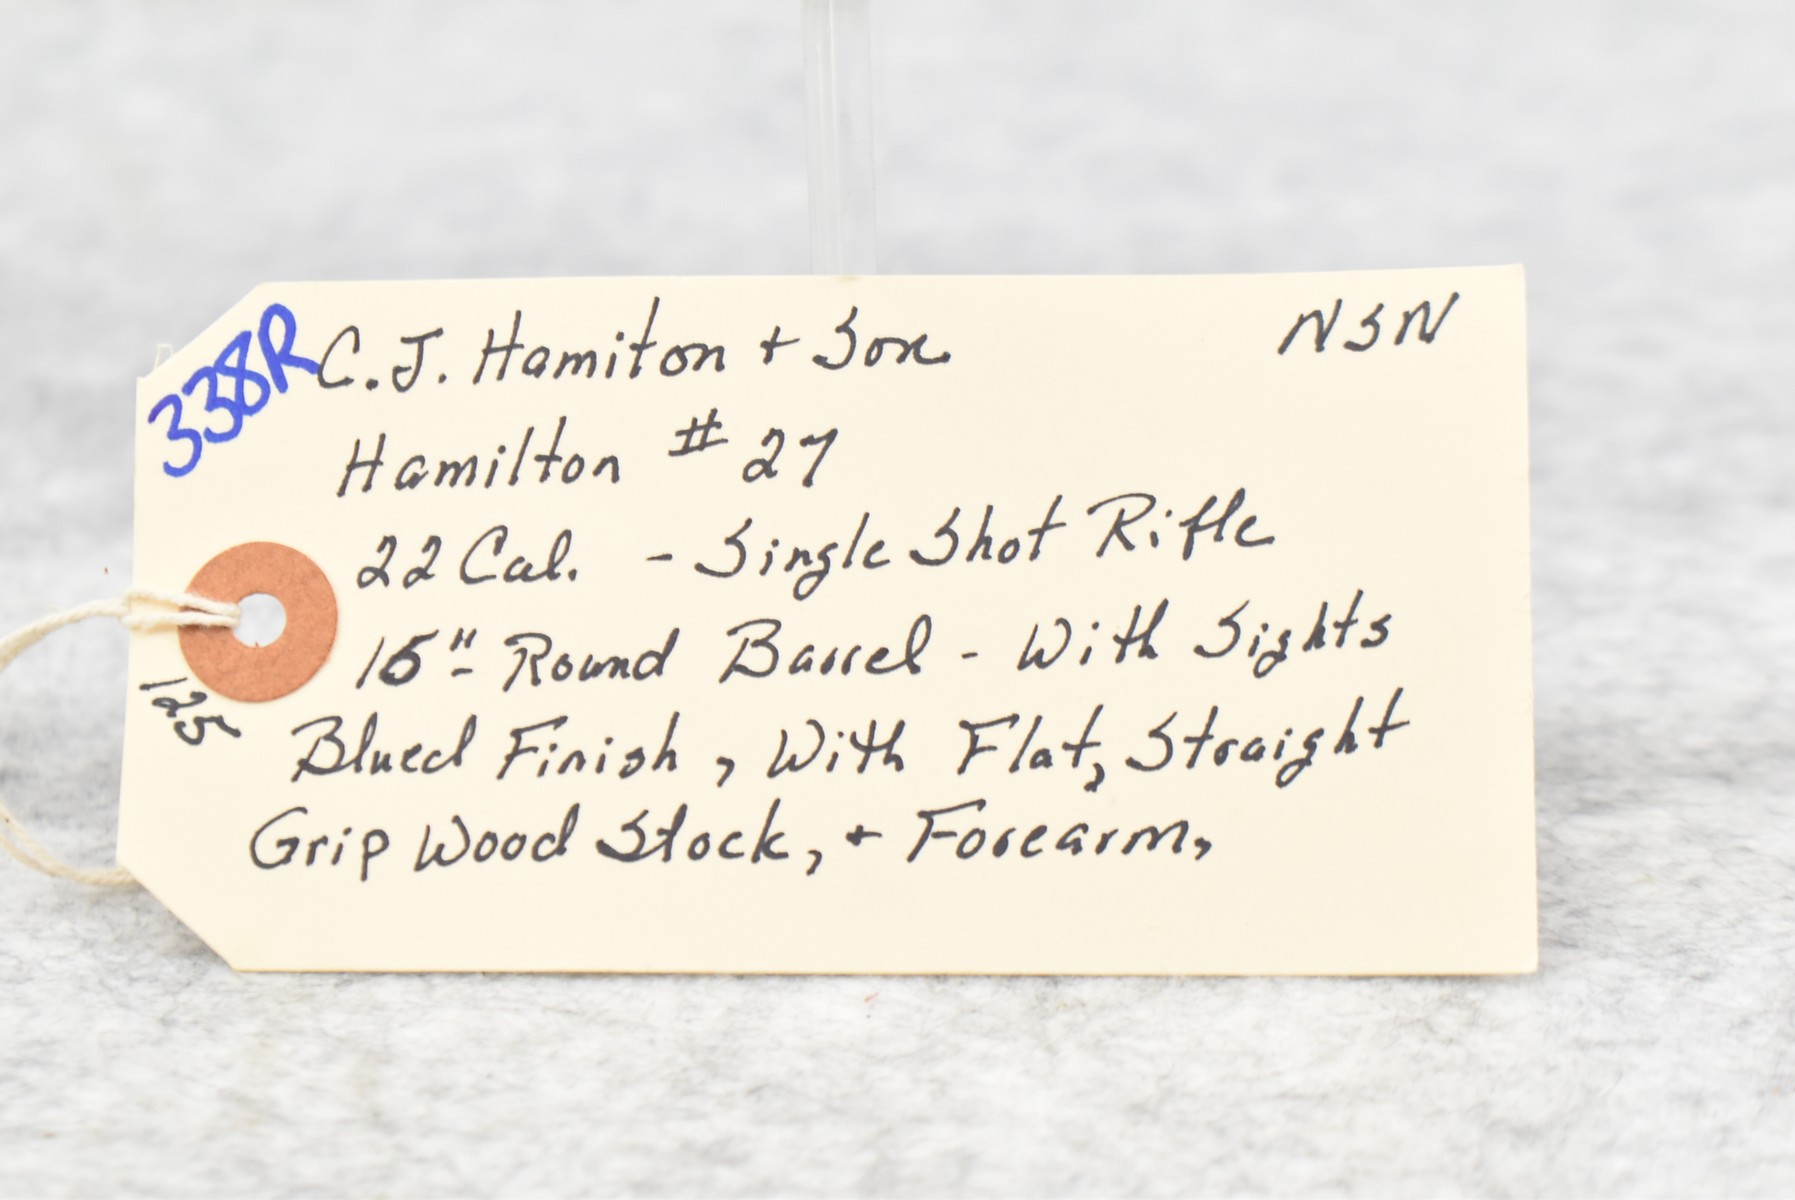 338R
C.J. Hamiton + Son
NSN
Hamilton # 27
22 Cal. - Single Shot Rifle
15"- Round Barrel - With Sights
125
Blued Finish, With Flat, Straight
Grip Wood Stock, + Forearm,